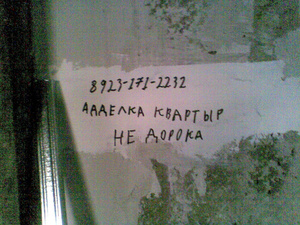 8923-171-2232
АДДЕЛКА КВАРТЫР
НЕ ДОРОКА